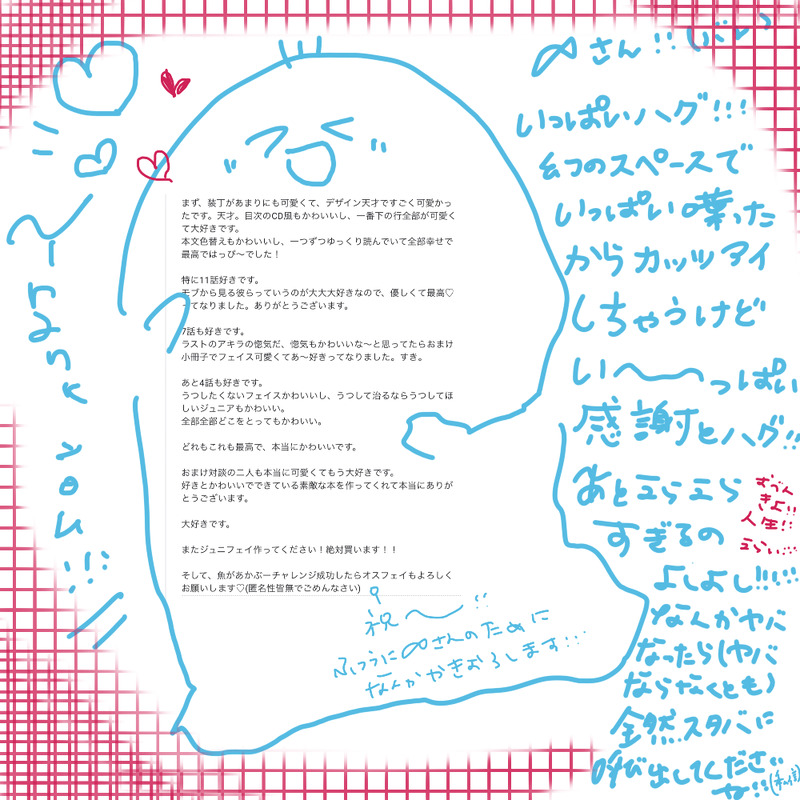 まず、装丁があまりにも可愛くて、デザイン天才ですごく可愛かっ
たです。天才。目次のCD風もかわいいし、一番下の行全部が可愛く
て大好きです。
本文色替えもかわいいし、一つずつゆっくり読んでいて全部幸せで
最高ではっぴ〜でした！
特に11話好きです。
モブから見る彼らっていうのが大大大好きなので、優しくて最高♡
ってなりました。ありがとうございます。
7話も好きです。
ラストのアキラの惚気だ、惚気もかわいいな〜と思ってたらおまけ
小冊子でフェイス可愛くてあ〜好きってなりました。すき。
あと4話も好きです。
うつしたくないフェイスかわいいし、うつして治るならうつしてほ
しいジュニアもかわいい。
全部全部どこをとってもかわいい。
どれもこれも最高で、本当にかわいいです。
おまけ対談の二人も本当に可愛くてもう大好きです。
好きとかわいいでできている素敵な本を作ってくれて本当にありが
とうございます。
大好きです。
またジュニフェイ作ってください！絶対買います！！
そして、魚があかぶーチャレンジ成功したらオスフェイもよろしく
お願いします♡(匿名性皆無でごめんなさい)
祝〜!!
ふつうに∞さんのために
なんかかきおろします!!!
∞さん!!(バレ)
いっぱいハグ!!!
幻のスペースで
いっぱい喋った
からカッツアイ
しちゃうけど
い〜っぱい
感謝とハグ!!
あとえらえら
すぎるの
よしよし!!!!!
なんかヤバ
なったら(ヤバ
ならなくとも)
全然スタバに
呼び出してくださ
ね!!
人生!!
えらい...